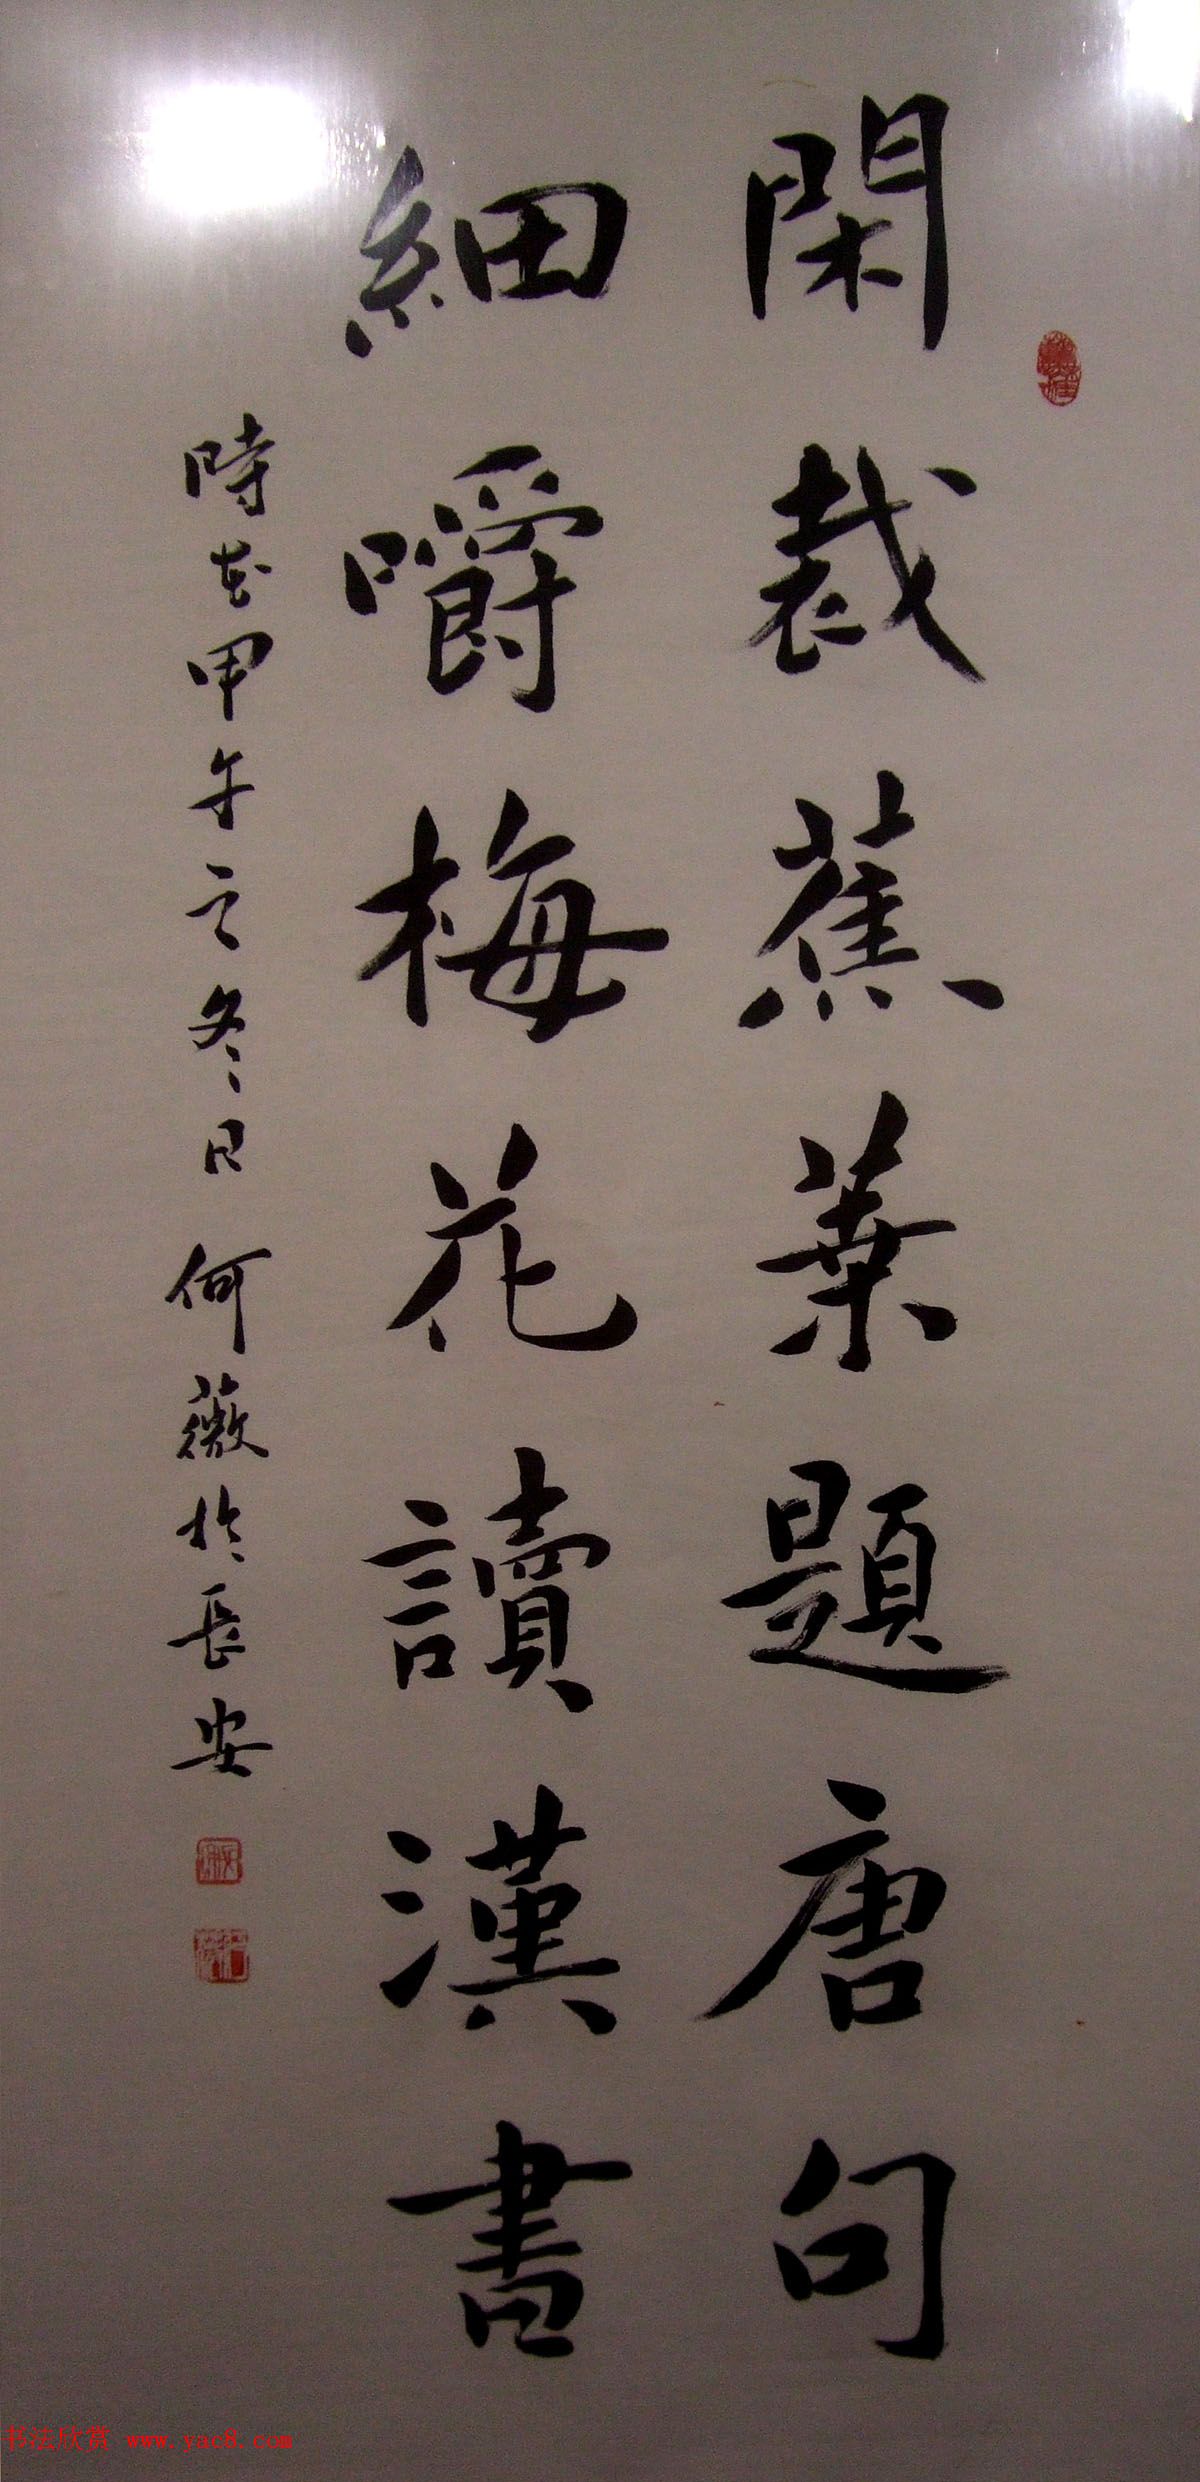 閑裁蕉葉題唐句
細嚼梅花讀漢書
時在甲午之冬日何薇於長安
书法欣赏 www.yac8.com